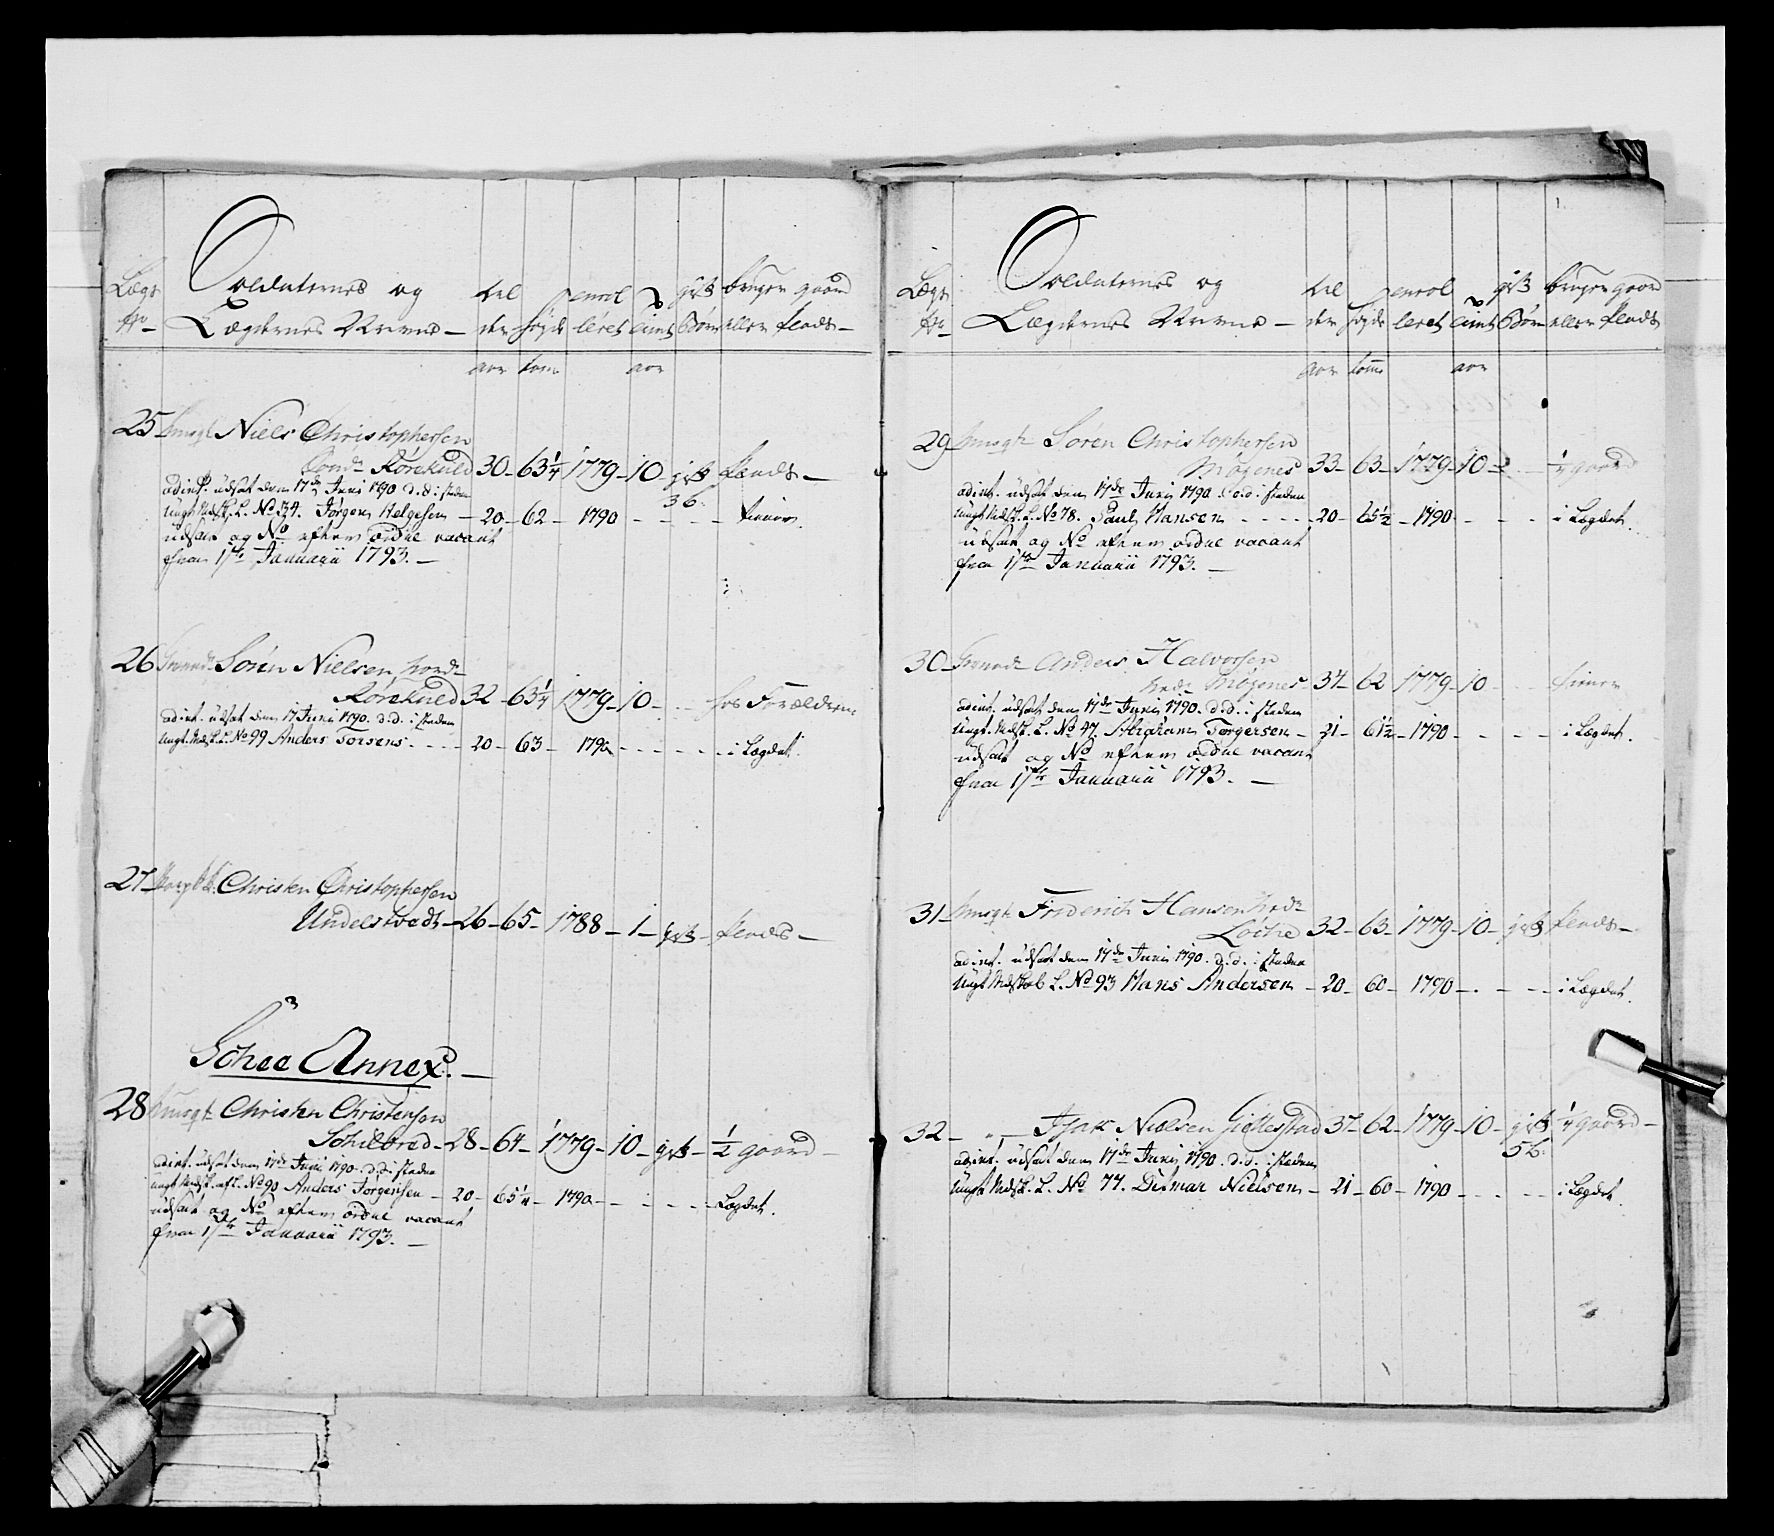 Lægs No
Soldaternes og
Lægdernes Navne –
Al der
høyde
enrol leret
tient
gift Børn
bruger gaard eller Plads –
aar tom aar
25 Musqt Niels Christophersen
Rörekuld 30 – 63¼ 1779 – 10 – gift Plads –
3 b.
adint. udsat den 17de Junii 1790 d. d. i steden
Ungt Mdsk. L. No 34. Jörgen Helgesen – 20 – 62 – 1790 – – – tiener.
udsat og No efter ordre vacant
fra 1ste Januarii 1793. –
26 Sören Nielsen
Rörekuld 32 – 63¼ 1779 – 10 – – hos Forældrene
adint. udsat den 17 Junii 1790. d. d. i steden
Ungt. Mdsk. L. No 99 Anders Torsens – – 20 – 63 – 1790 – – – – i Lægdet.
27 Christen Christophersen
Undelstvedt – 26 – 65 – 1788 – 1 – gift – Plads –
Schee Annex. –
28 Musqt Christen Christensen
Schilbred – 28 – 64 – 1779 – 10 – gift – ½ gaard –
adint. udsat den 17de Junii 1790. d. d. i steden
Ungt Mdsk. L. No 90 Anders Jörgensen – 20 – 65¼ – 1790 – – – – Lægdet.
udsat og No efter ordre vacant
fra 1ste Januarii 1793. –
Lægs No
Soldaternes og
Lægdernes Navne –
Al der
høyde
enrol leret
tient
gift Børn
bruger gaard eller Plads
aar tom aar
29 Musqt Sören Christophersen
Mögenes 33 – 63 – 1779 – 10 – – ¼ gaard
adint. udsat den 17de Junii 1790. d. d. i steden
Ungt Mdsk. L. No 78. Paul Hansen – – – 20 – 65½ – 1790 – – – i Lægdet.
udsat og No efter ordre vacant
fra 1ste Januarii 1793. –
30 Anders Halvorsen
Mögenes – 34 – 62 1779 – 10 – – – tiener
adint. udsat den 17de Junii 1790. d. d. i steden
Ungt. Mdsk. L. No 47. Abraham Torgersen – 21 – 61½ – 1790 – – – – i Lægdet.
udsat og No efter ordre vacant
fra 1ste Januarii 1793. –
31 Musqt Friderich Hansen
Löche 32 – 63 – 1779 – 10 – gift Plads –
adint. udsat den 17de Junii 1790. d. d. i steden
Ungt Mdskab L. No 93 Hans Andersen – 20 – 60 – 1790 – – – – i Lægdet.
32 – „ – Isak Nielsen Gidlestad 37 – 62 – 1779 – 10 – gift ¼ gaard –
5 b.
adint. udsat den 17de Junii 1790. d. d. i steden
Ungt Mdsk. L. No 77. Ditmar Nielsen – 21 – 60 – 1790 – – – – i Lægdet.